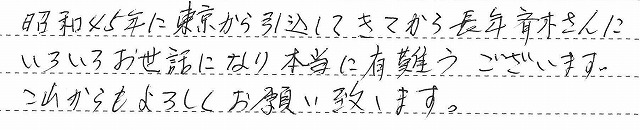 昭和45年に東京から引込してきてから長年斉木さんに
いろいろお世話になり本当に有難うございます。
これからもよろしくお願い致します。